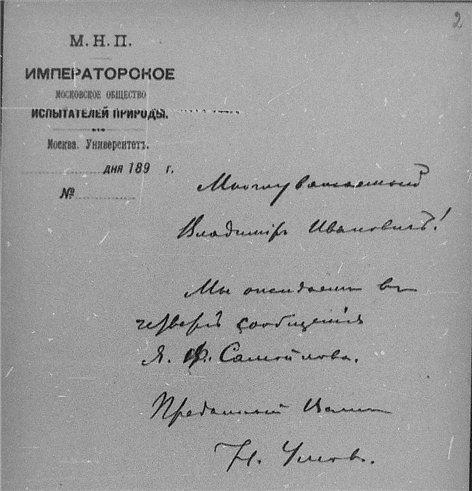 2
М. Н. П.
ИМПЕРАТОРСКОЕ
МОСКОВСКОЕ ОБЩЕСТВО
ИСПЫТАТЕЛЕЙ ПРИРОДЫ.
Москва. Университетъ.
дня 189 г.
№
Многоуважаемый
Владимiръ Ивановичъ!
Мы ожидаемъ въ
четвергъ сообщенiя
Я. Ф. Самойлова.
Преданный Вамъ
Н. Умовъ.